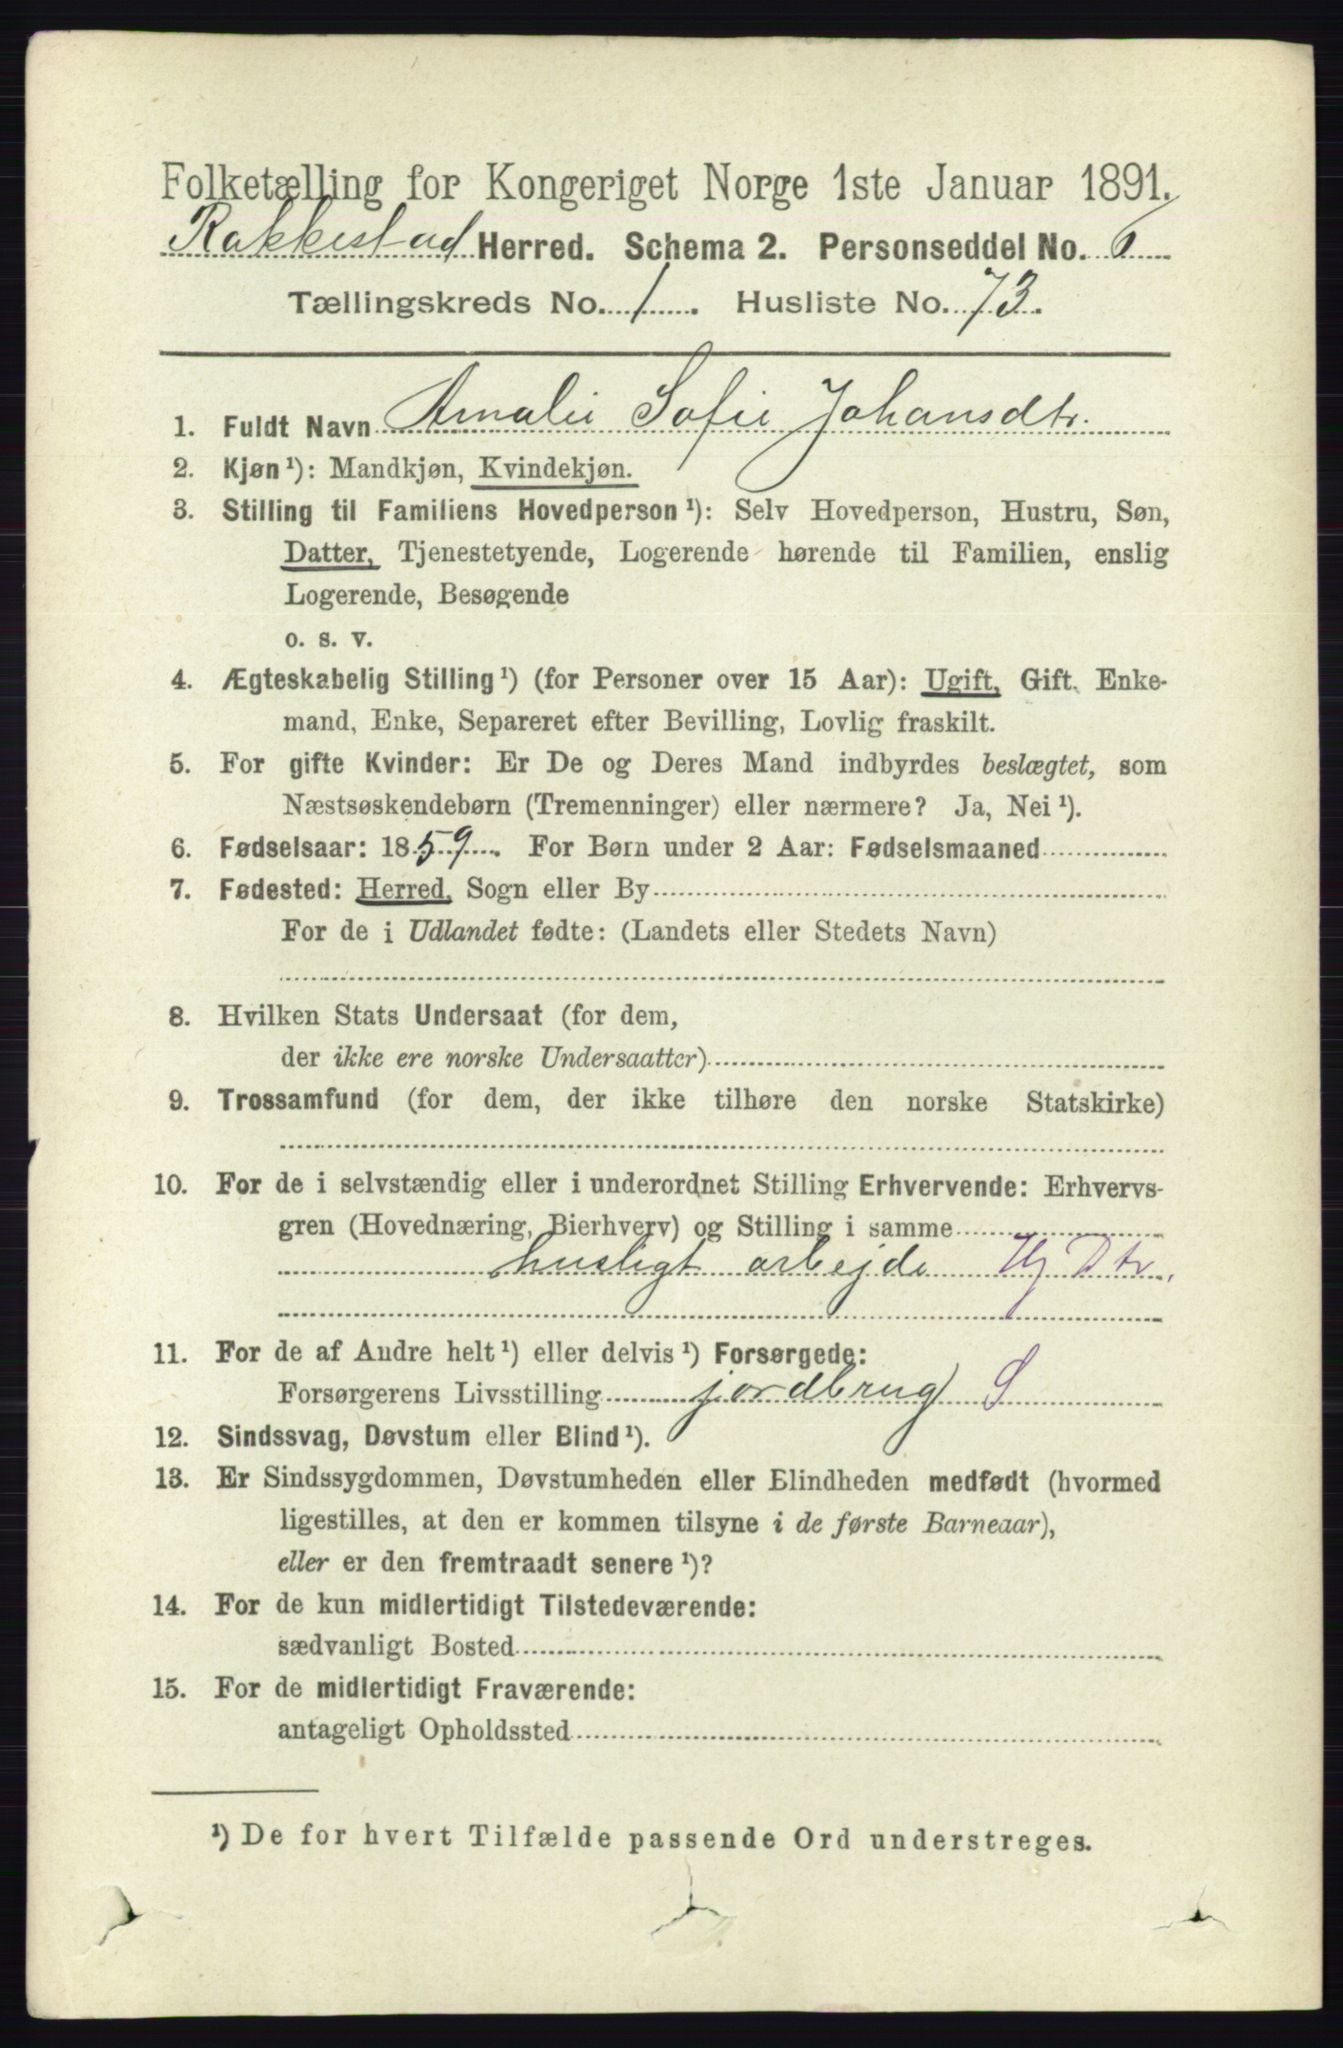 Folketælling for Kongeriget Norge 1ste Januar 1891.
Rakkestad Herred. Schema 2. Personseddel No. 6
Tællingskreds No. 1. Husliste No. 73.
1. Fuldt Navn Amalie Sofie Johansdtr.
2. Kjøn¹): Mandkjøn, Kvindekjøn.
3. Stilling til Familiens Hovedperson¹): Selv Hovedperson, Hustru, Søn,
Datter, Tjenestetyende, Logerende hørende til Familien, enslig
Logerende, Besøgende
o. s. v.
4. Ægteskabelig Stilling¹) (for Personer over 15 Aar): Ugift, Gift, Enke-
mand, Enke, Separeret efter Bevilling, Lovlig fraskilt.
5. For gifte Kvinder: Er De og Deres Mand indbyrdes beslægtet, som
Næstsøskendebørn (Tremenninger) eller nærmere? Ja, Nei¹).
6. Fødselsaar: 1859. For Børn under 2 Aar: Fødselsmaaned
7. Fødested: Herred, Sogn eller By
For de i Udlandet fødte: (Landets eller Stedets Navn)
8. Hvilken Stats Undersaat (for dem,
der ikke ere norske Undersaatter)
9. Trossamfund (for dem, der ikke tilhøre den norske Statskirke)
10. For de i selvstændig eller i underordnet Stilling Erhvervende: Erhvervs-
gren (Hovednæring, Bierhverv) og Stilling i samme
husligt arbejde Hj Dtr.
11. For de af Andre helt¹) eller delvis¹) Forsørgede:
Forsørgerens Livsstilling jordbrug S
12. Sindssvag, Døvstum eller Blind¹).
13. Er Sindssygdommen, Døvstumheden eller Blindheden medfødt (hvormed
ligestilles, at den er kommen tilsyne i de første Barneaar),
eller er den fremtraadt senere¹)?
14. For de kun midlertidigt Tilstedeværende:
sædvanligt Bosted
15. For de midlertidigt Fraværende:
antageligt Opholdssted
¹) De for hvert Tilfælde passende Ord understreges.